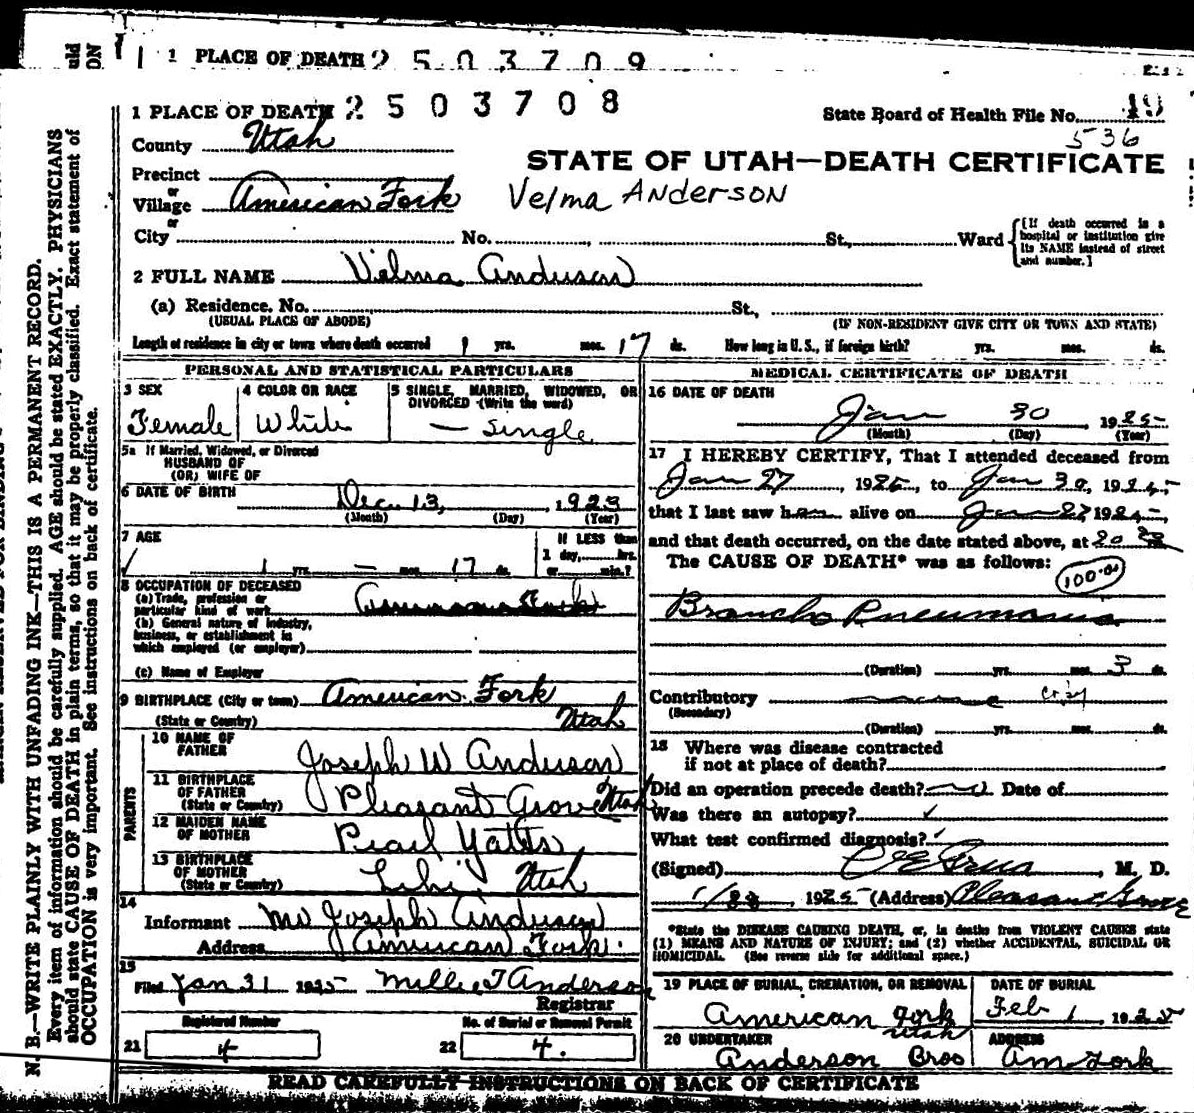 1 PLACE OF DEATH 2503709
1 PLACE OF DEATH 2503708
State Board of Health File No. 19
536
County Utah
STATE OF UTAH—DEATH CERTIFICATE
Precinct
or
Village American Fork
Velma Anderson
or
City No. , St., Ward
[If death occurred in a hospital or institution give its NAME instead of street and number.]
2 FULL NAME Velma Anderson
(a) Residence. No. St.,
(USUAL PLACE OF ABODE) (IF NON-RESIDENT GIVE CITY OR TOWN AND STATE)
Length of residence in city or town where death occurred 1 yrs. mos. 17 ds. How long in U. S., if foreign birth? yrs. mos. ds.
PERSONAL AND STATISTICAL PARTICULARS
3 SEX
Female
4 COLOR OR RACE
White
5 SINGLE, MARRIED, WIDOWED, OR DIVORCED (Write the word)
— Single
5a If Married, Widowed, or Divorced
HUSBAND OF
(OR) WIFE OF
6 DATE OF BIRTH
Dec. 13, 1923
(Month) (Day) (Year)
7 AGE
1 yrs. — mos. 17 ds.
If LESS than
1 day, hrs.
or min.?
8 OCCUPATION OF DECEASED
(a) Trade, profession or
particular kind of work
(b) General nature of industry,
business, or establishment in
which employed (or employer)
(c) Name of Employer
9 BIRTHPLACE (City or town) American Fork
(State or Country) Utah
PARENTS
10 NAME OF
FATHER Joseph W Anderson
11 BIRTHPLACE
OF FATHER
(State or Country) Pleasant Grove Utah
12 MAIDEN NAME
OF MOTHER Pearl Yates
13 BIRTHPLACE
OF MOTHER
(State or Country) Lehi, Utah
14
Informant Mr Joseph Anderson
Address American Fork.
15
Filed Jan 31 1925 Millie T Anderson
Registrar
Registered Number No. of Burial or Removal Permit
21 4 22 4.
MEDICAL CERTIFICATE OF DEATH
16 DATE OF DEATH
Jan 30 1925
(Month) (Day) (Year)
17 I HEREBY CERTIFY, That I attended deceased from
Jan 27, 1925, to Jan 30, 1925
that I last saw h alive on Jan 27 1925,
and that death occurred, on the date stated above, at
The CAUSE OF DEATH* was as follows:
100
Broncho Pneumonia
(Duration) yrs. mos. 3 ds.
Contributory
(Secondary)
(Duration) yrs. mos. ds.
18 Where was disease contracted
if not at place of death?
Did an operation precede death? no Date of
Was there an autopsy?
What test confirmed diagnosis?
(Signed) , M. D.
1925 (Address) Pleasant Grove
*State the DISEASE CAUSING DEATH, or, in deaths from VIOLENT CAUSES state
(1) MEANS AND NATURE OF INJURY; and (2) whether ACCIDENTAL, SUICIDAL OR
HOMICIDAL. (See reverse side for additional space.)
19 PLACE OF BURIAL, CREMATION, OR REMOVAL
American Fork
Utah
DATE OF BURIAL
Feb 1, 1925
20 UNDERTAKER
Anderson Bros
ADDRESS
Am Fork
READ CAREFULLY INSTRUCTIONS ON BACK OF CERTIFICATE
N. B.—WRITE PLAINLY WITH UNFADING INK—THIS IS A PERMANENT RECORD.
Every item of information should be carefully supplied. AGE should be stated EXACTLY. PHYSICIANS
should state CAUSE OF DEATH in plain terms, so that it may be properly classified. Exact statement of
OCCUPATION is very important. See instructions on back of certificate.